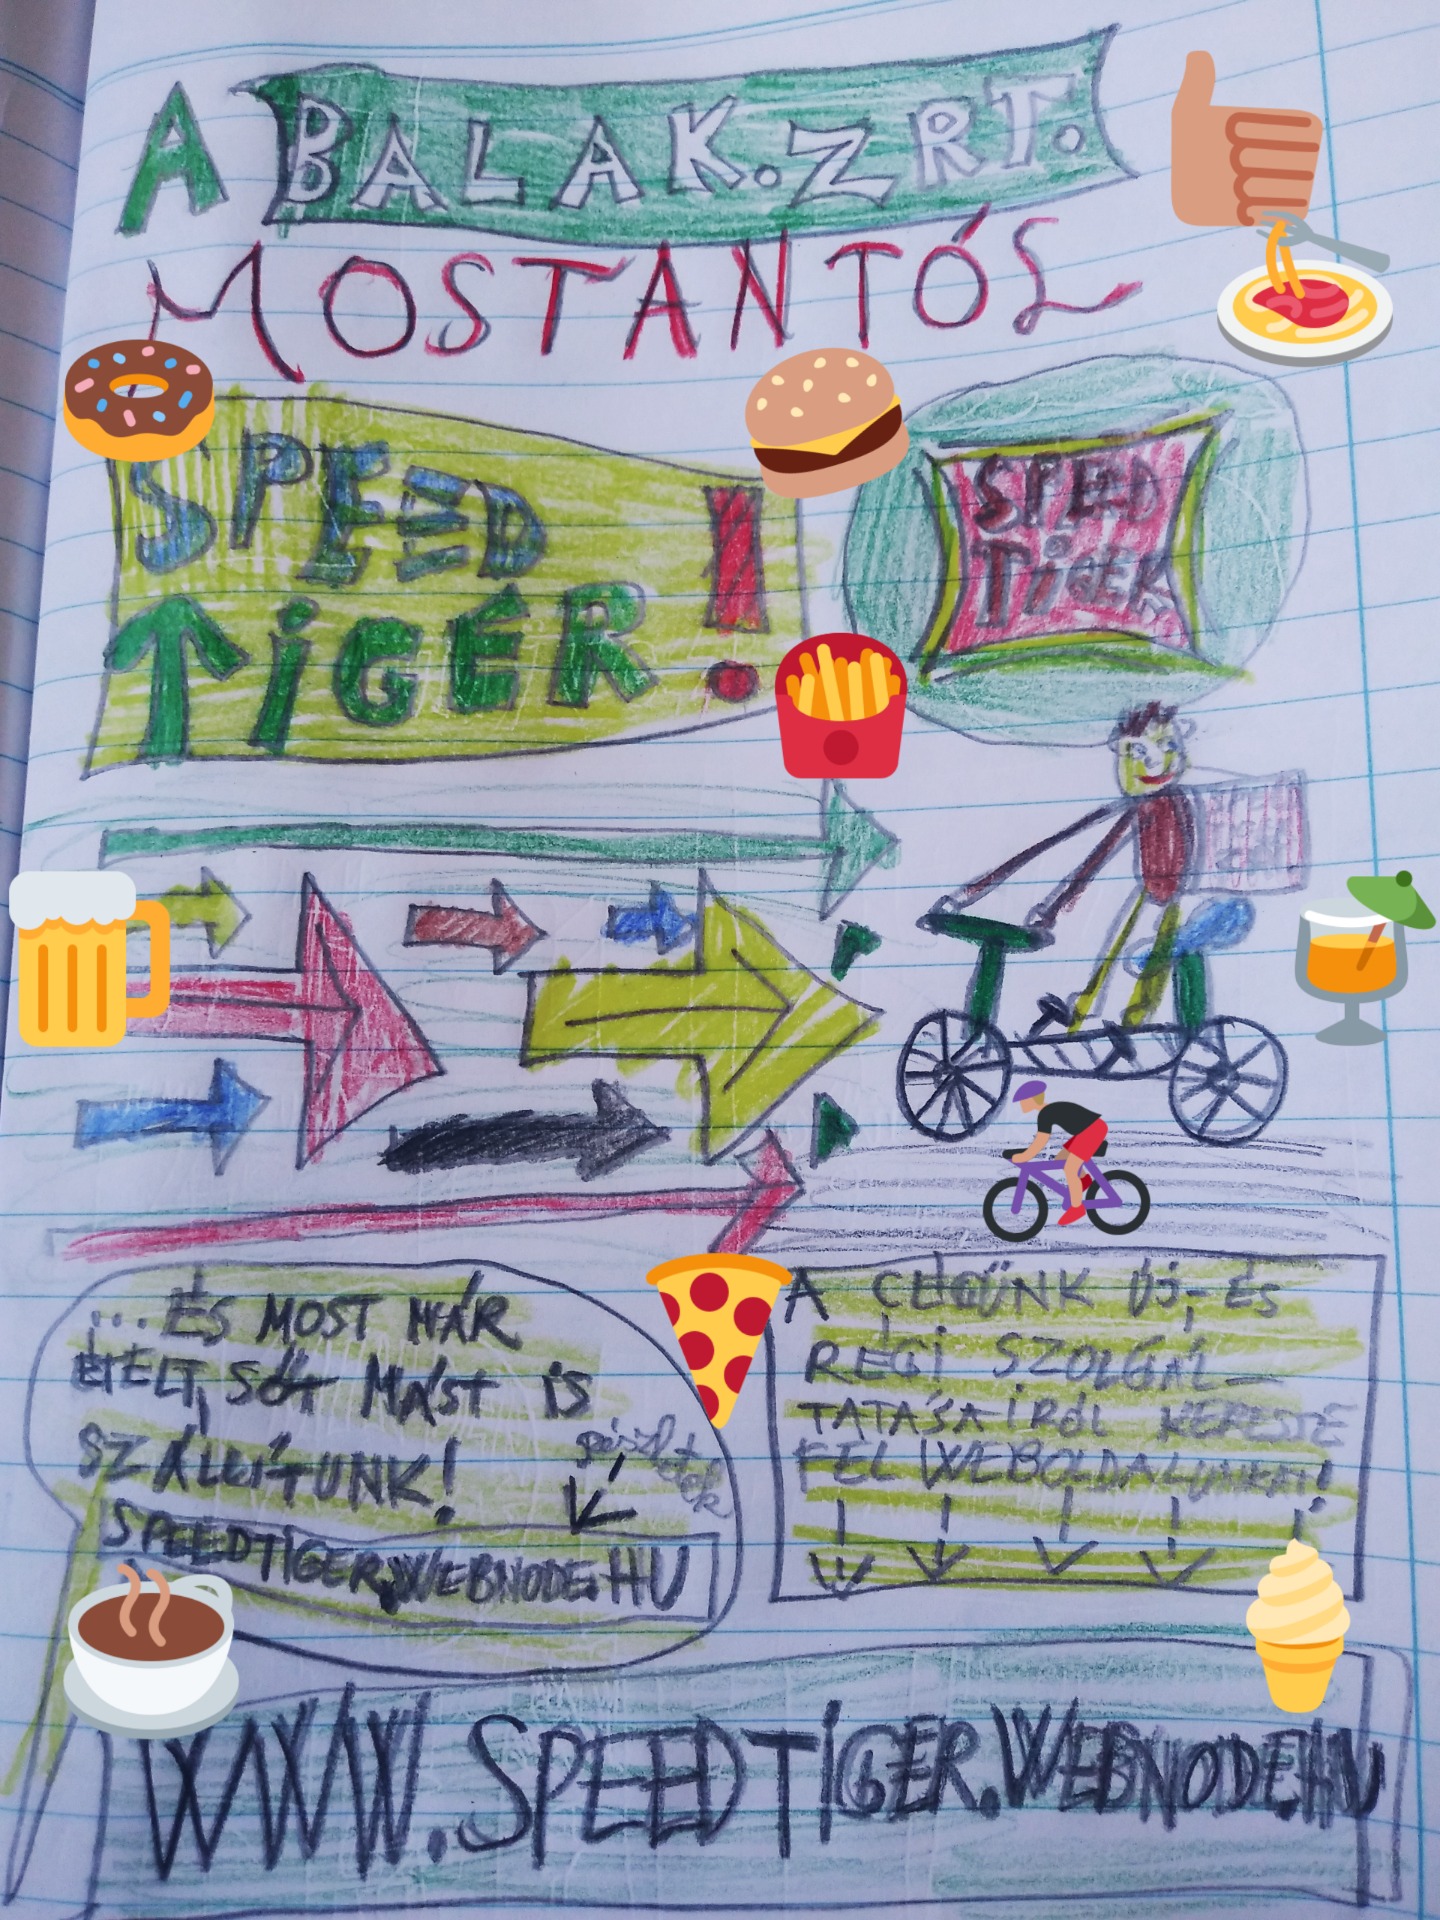 A BALAK.ZRT.
MOSTANTÓL
SPEED
TIGER!
SPEED
TIGER
...ÉS MOST MÁR
ÉTELT, SŐT MÁST IS
SZÁLLÍTUNK!
részletek
SPEEDTIGER.WEBNODE.HU
A CÉGÜNK ÚJ, ÉS
RÉGI SZOLGÁL-
TATÁSAIRÓL KERESSE
FEL WEBOLDALUNKAT!
WWW.SPEEDTIGER.WEBNODE.HU